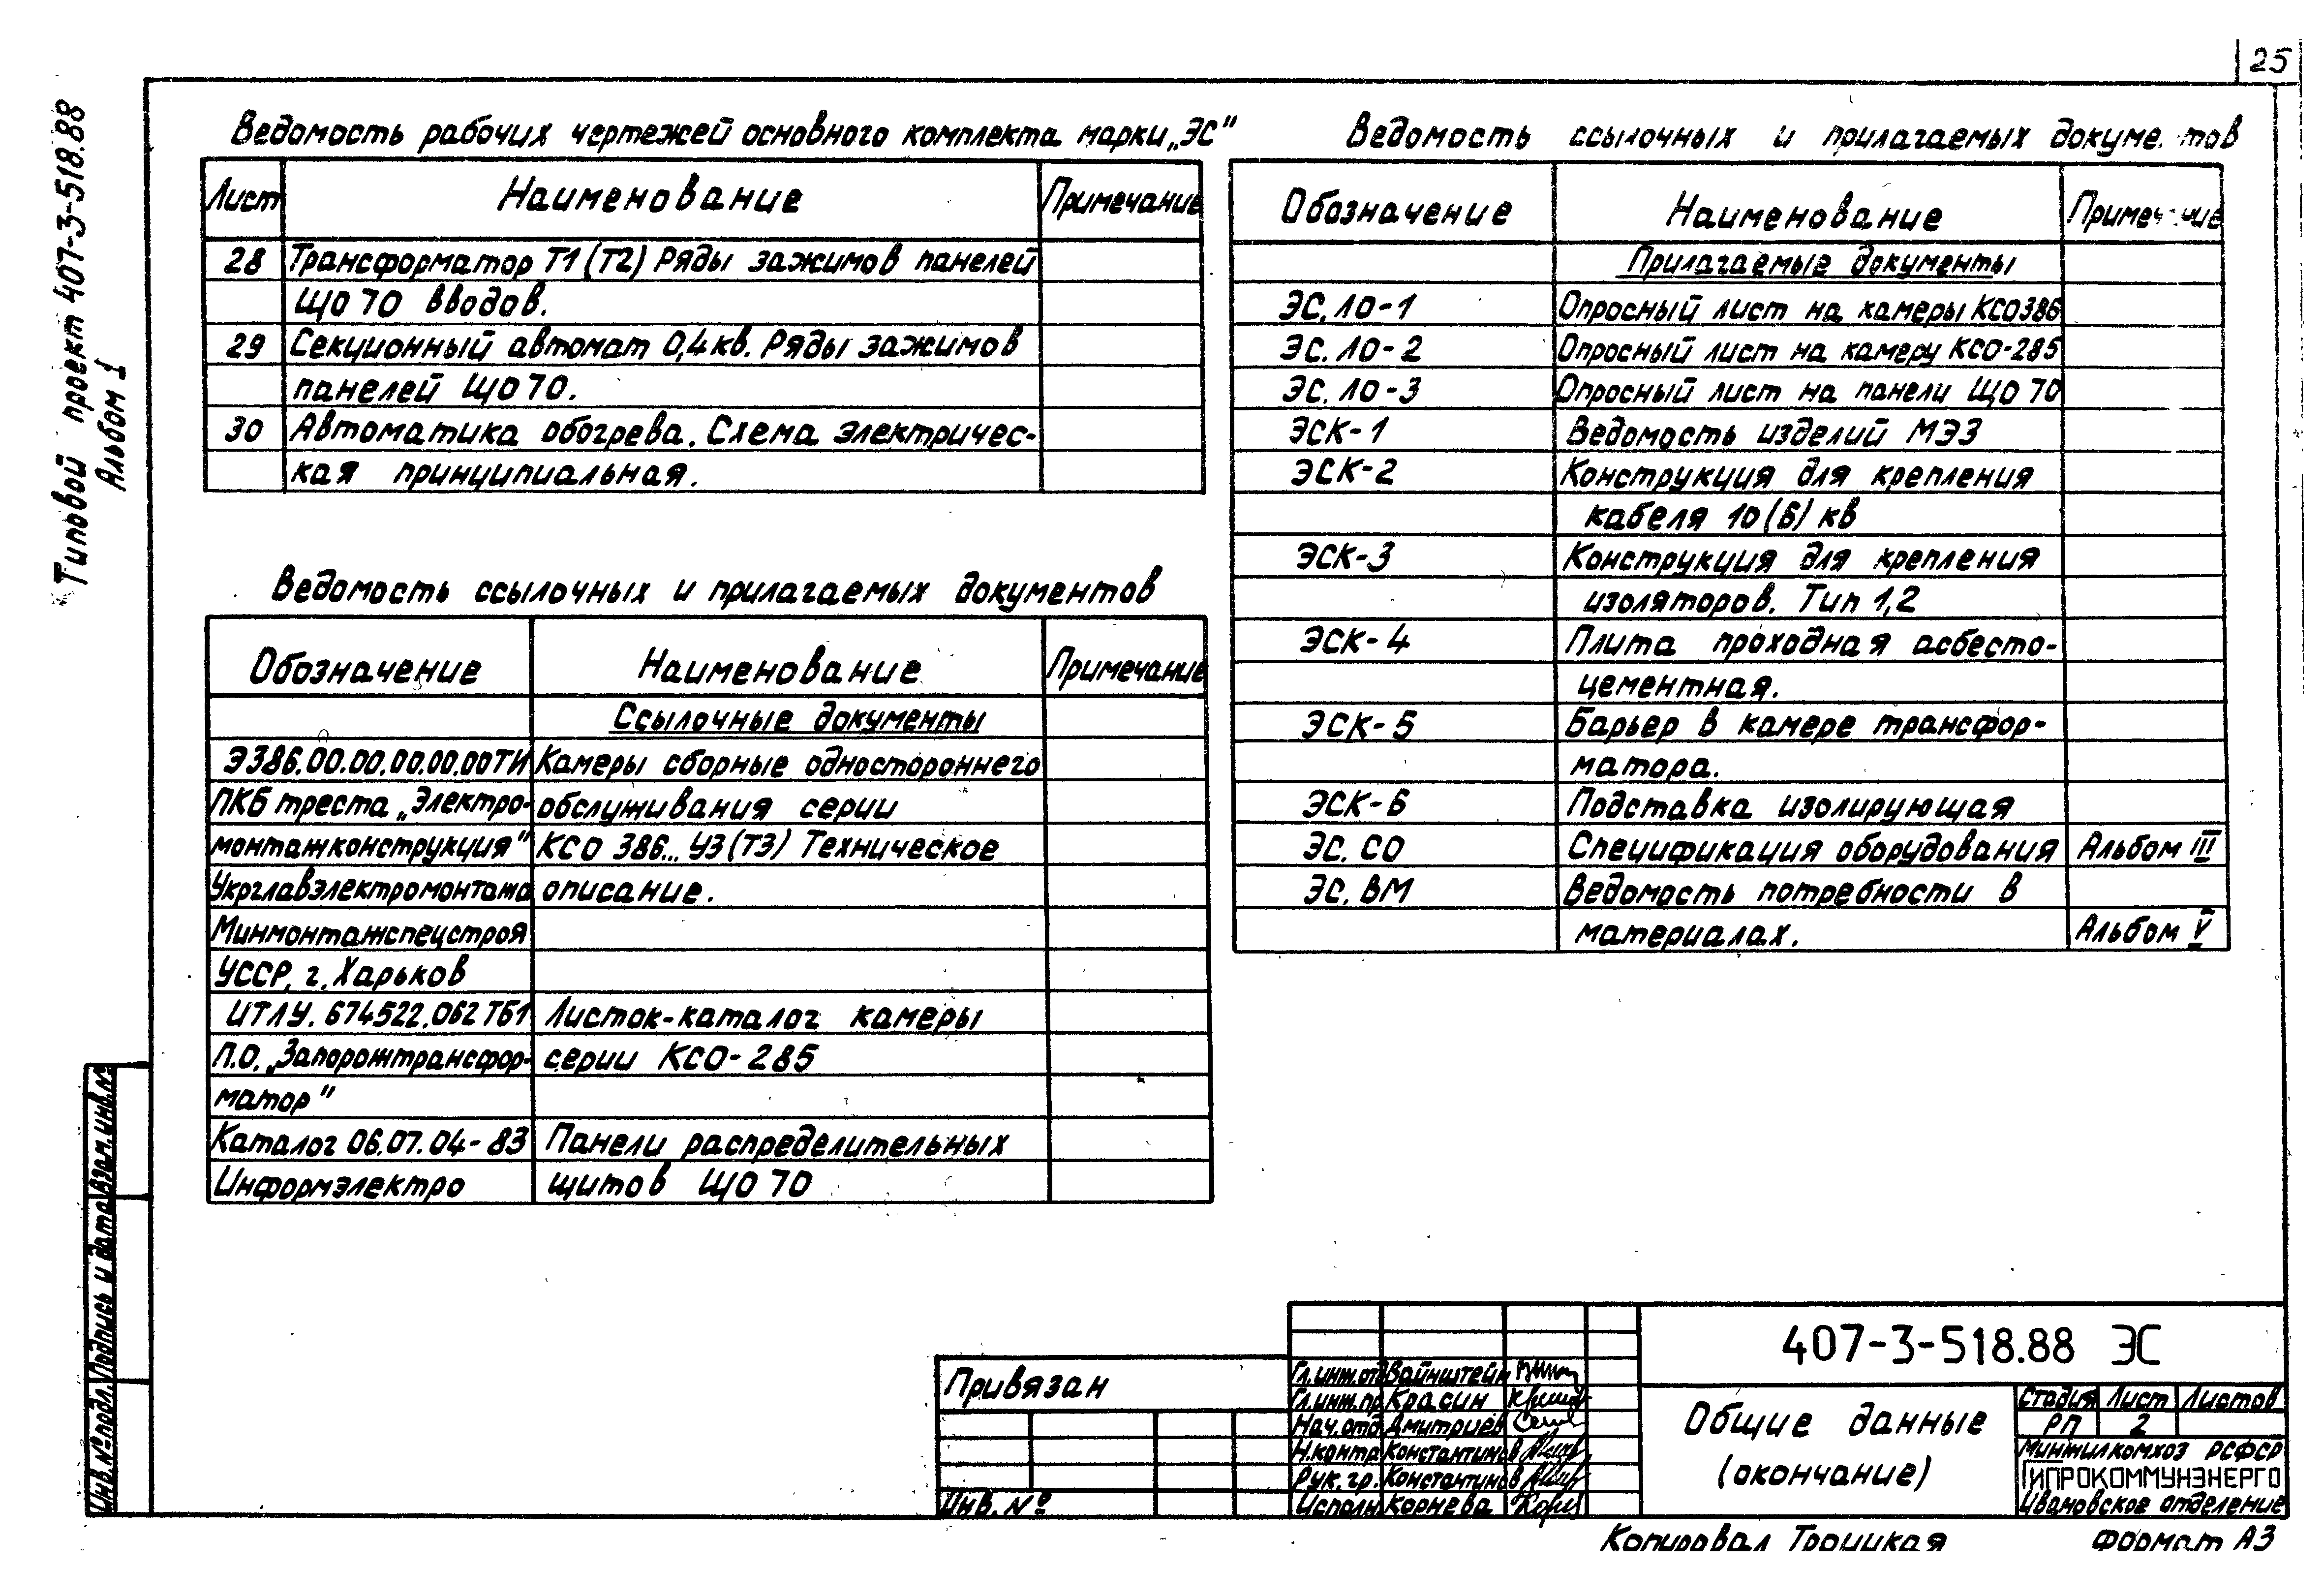 25
Типовой проект 407-3-518.88
Альбом 1
Ведомость рабочих чертежей основного комплекта марки „ЭС"
Лист Наименование Примечание
28 Трансформатор Т1 (Т2) Ряды зажимов панелей
ЩО 70 вводов.
29 Секционный автомат 0,4 кв. Ряды зажимов
панелей ЩО 70.
30 Автоматика обогрева. Схема электричес-
кая принципиальная.
Ведомость ссылочных и прилагаемых документов
Обозначение Наименование Примечание
Ссылочные документы
Э386.00.00.00.00.00ТИ Камеры сборные одностороннего
ПКБ треста „Электро- обслуживания серии
монтажконструкция" КСО 386... У3 (Т3) Техническое
Укрглавэлектромонтажа описание.
Минмонтажспецстроя
УССР, г. Харьков
ИТЛУ. 674522.062 ТБ1 Листок-каталог камеры
П.О. „Запорожтрансфор- серии КСО-285
матор"
Каталог 06.07.04-83 Панели распределительных
Информэлектро щитов ЩО 70
Ведомость ссылочных и прилагаемых
Обозначение Наименование
Прилагаемые документы
ЭС.ЛО-1 Опросный лист на камеры КСО386
ЭС.ЛО-2 Опросный лист на камеру КСО-285
ЭС.ЛО-3 Опросный лист на панели ЩО 70
ЭСК-1 Ведомость изделий МЭЗ
ЭСК-2 Конструкция для крепления
кабеля 10 (6) кв
ЭСК-3 Конструкция для крепления
изоляторов. Тип 1,2
ЭСК-4 Плита проходная асбесто-
цементная.
ЭСК-5 Барьер в камере трансфор-
матора.
ЭСК-6 Подставка изолирующая
ЭС.СО Спецификация оборудования Альбом III
ЭС.ВМ Ведомость потребности в
материалах. Альбом V
Инв. № подл. Подпись и дата Взам. инв. №
Привязан
Инв. №
Гл. инж. отд Вайнштейн
Гл. инж. пр Красин
Нач. отд Дмитриев
Н. контр Константинов
Рук. гр. Константинов
Исполн Корнева
407-3-518.88 ЭС
Общие данные
(окончание)
Стадия Лист Листов
РП 2
Минжилкомхоз РСФСР
ГИПРОКОММУНЭНЕРГО
Ивановское отделение
Копировал Троицкая Формат А3